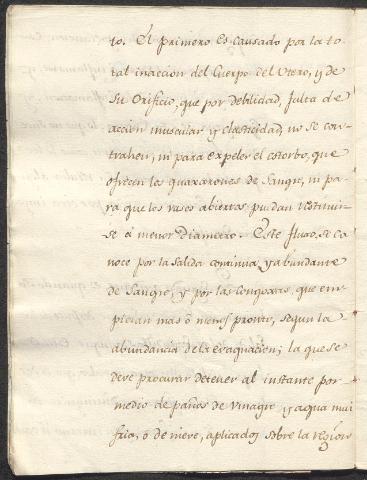 to. El primero es causado por la to-
tal inaccion del Cuerpo del Utero, y de
su Orificio, que por debilidad, falta de
accion muscular y elasticidad, no se con-
trahen, ni para expeler el estorbo, que
ofrecen los quaxarones de Sangre, ni pa-
ra que los vasos abiertos puedan restituir-
se á menor diametro. Este fluxo se co-
noce por la salida continua y abundante
de Sangre, y por las congoxas, que em-
piezan mas ó menos pronto, segun la
abundancia de la evaquacion; la que se
deve procurar detener al instante por
medio de paños de vinagre y agua mui
fria, ó de nieve, aplicados sobre la region